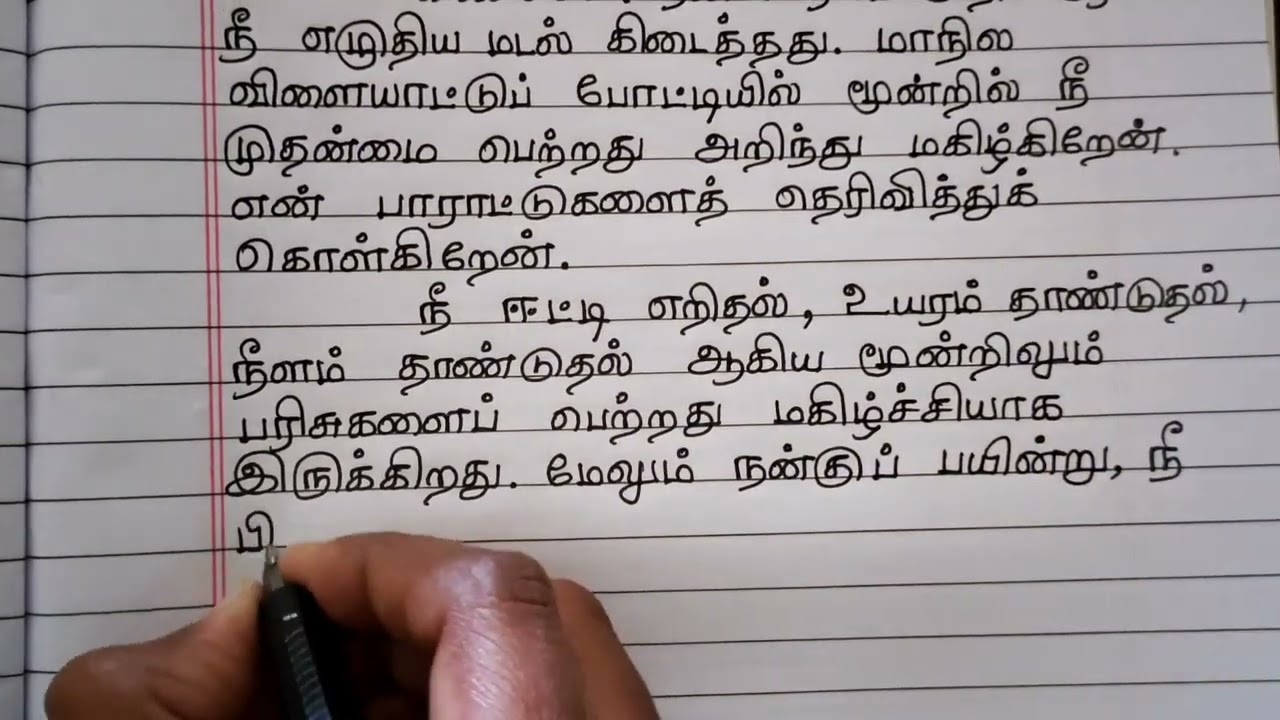 நீ எழுதிய மடல் கிடைத்தது. மாநில
விளையாட்டுப் போட்டியில் மூன்றில் நீ
முதன்மை பெற்றது அறிந்து மகிழ்கிறேன்.
என் பாராட்டுகளைத் தெரிவித்துக்
கொள்கிறேன்.
நீ ஈட்டி எறிதல், உயரம் தாண்டுதல்,
நீளம் தாண்டுதல் ஆகிய மூன்றிலும்
பரிசுகளைப் பெற்றது மகிழ்ச்சியாக
இருக்கிறது. மேலும் நன்குப் பயின்று, நீ
பி